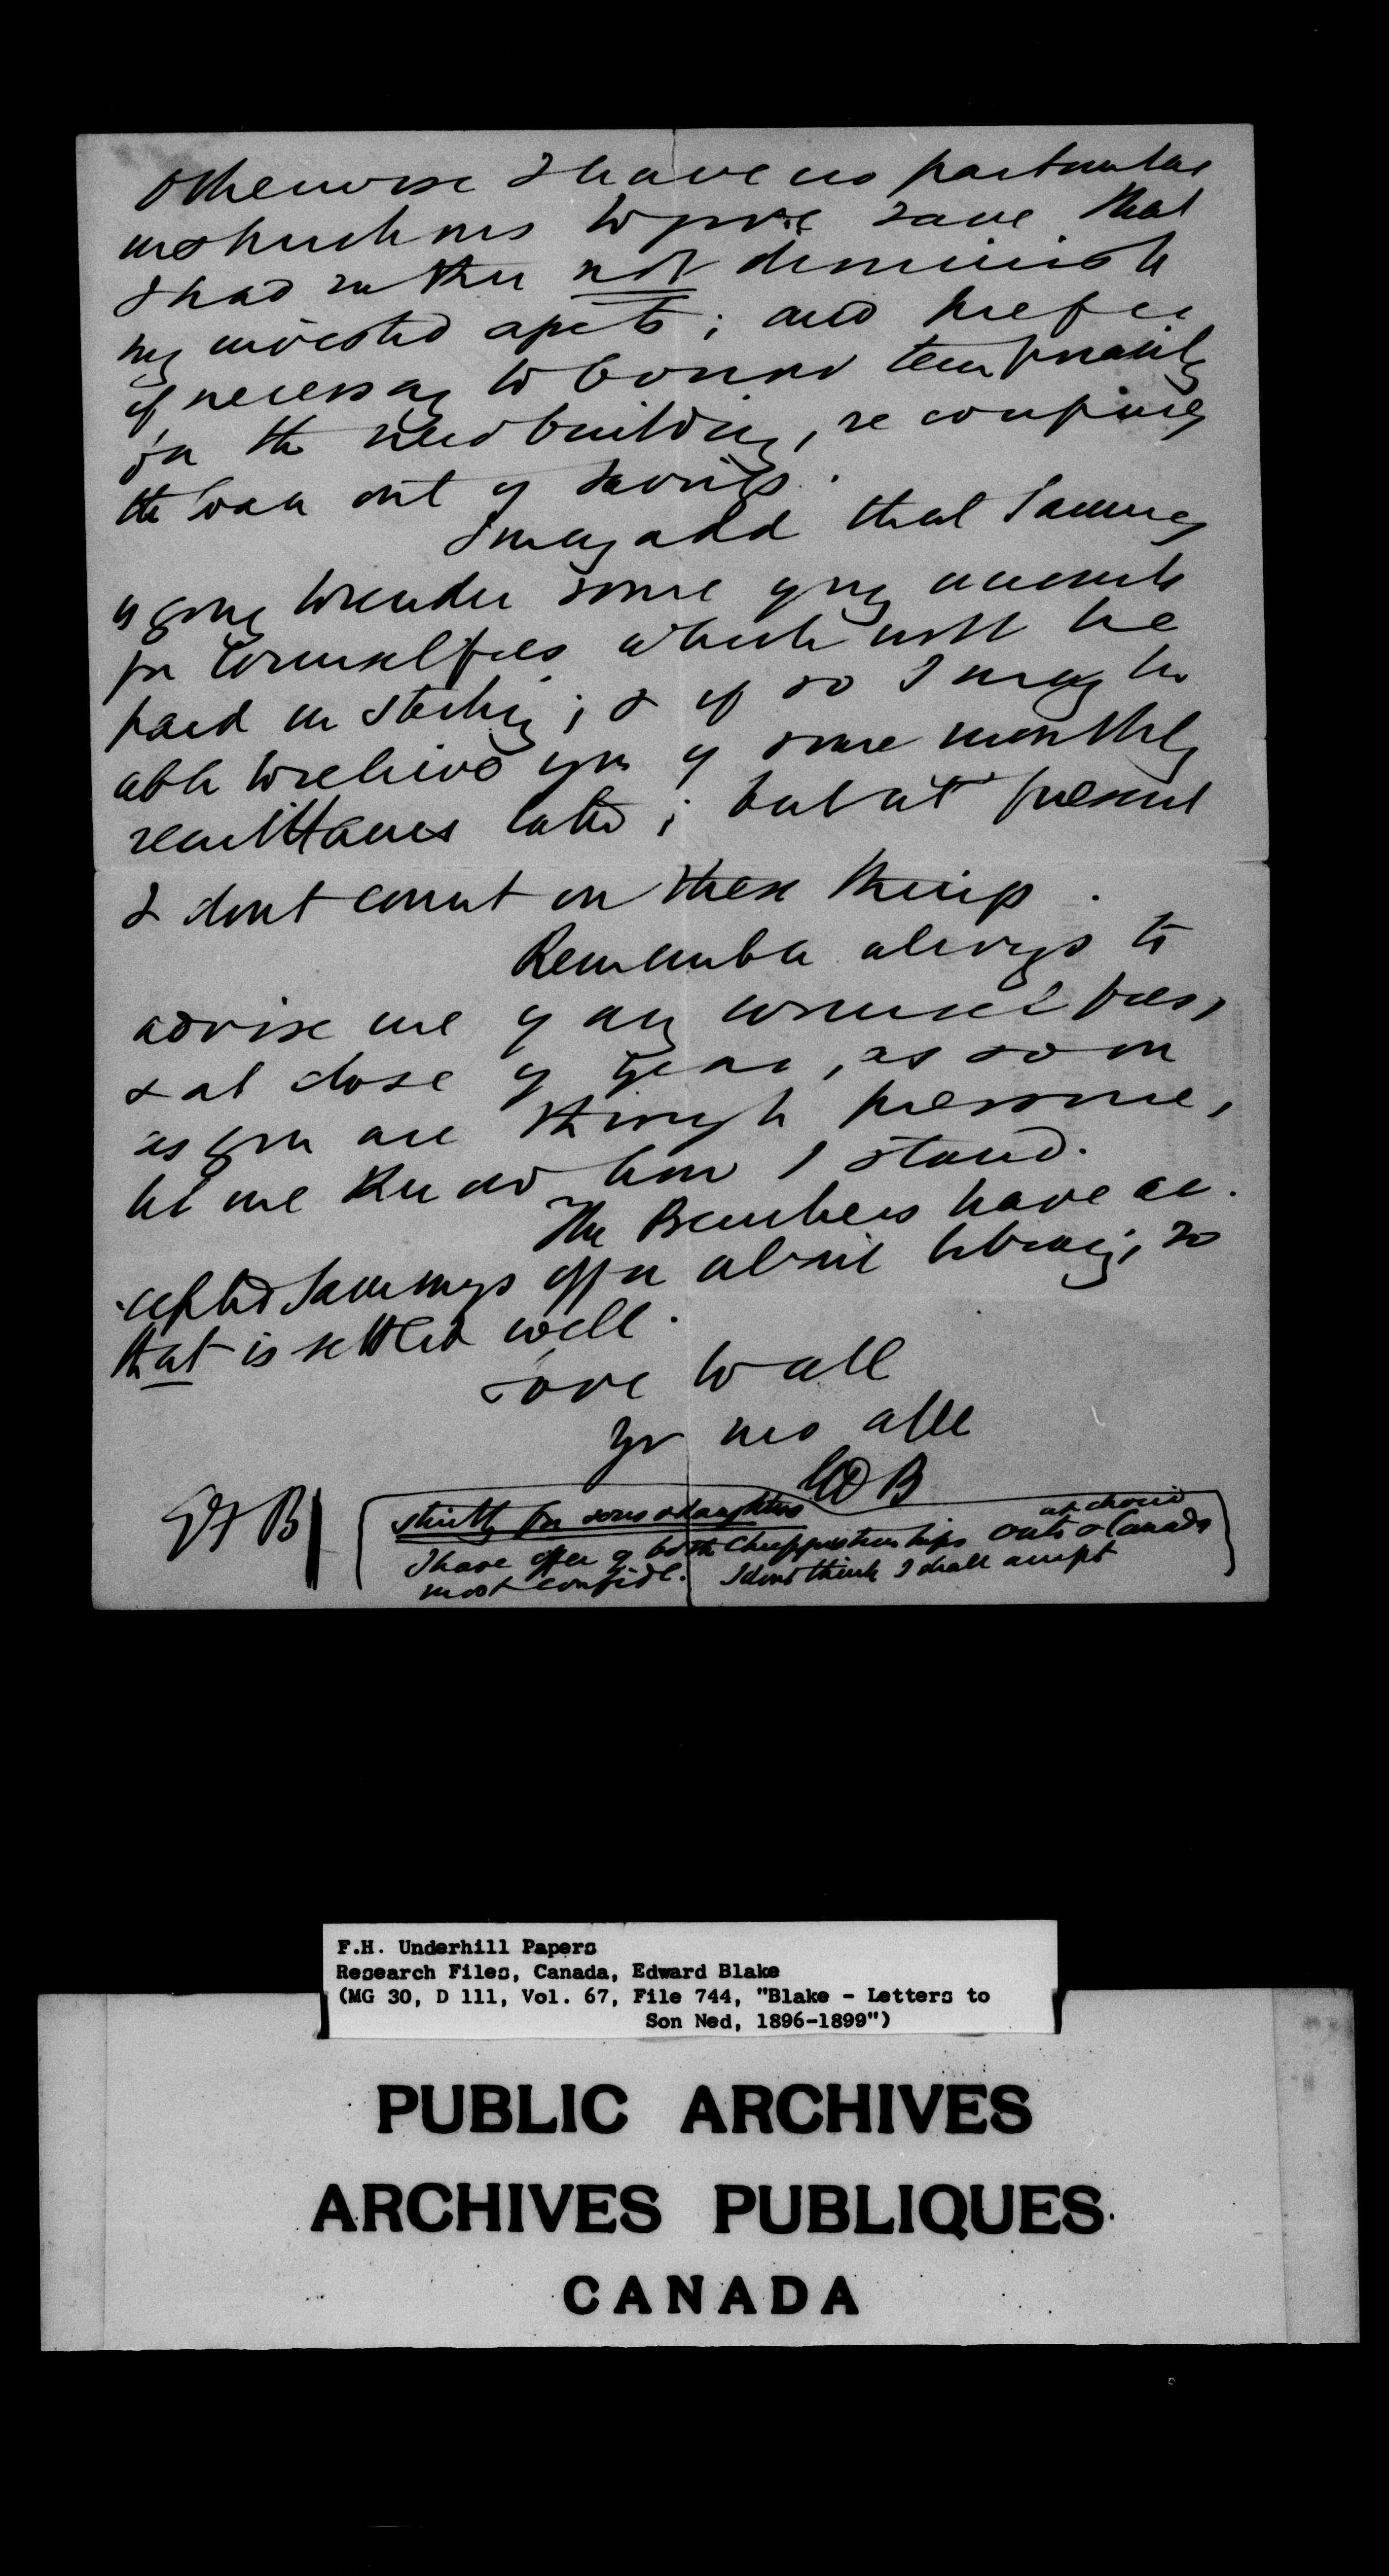 otherwise I have no particular
instructions to give save that
I had rather not diminish
my invested assets; and prefer
if necessary to borrow temporarily
for the new building, recouping
the loan out of savings.
I may add that Sammy
is going to render some of my accounts
for counsel fees which will be
paid in sterling; & if so I may be
able to relieve you of some monthly
remittances later; but at present
I dont count on these things.
Remember always to
advise me of any counsel fees,
& at close of year, as soon
as you are through
let me know how I stand.
The Benchers have ac-
-cepted Sammys offer about library, so
that is settled well.
Love to all
Yr
EB
EFB
strictly for sons & daughters
at choice
I have offer of both Chiefjusticeships Onto & Canada
most confidl. I dont think I shall accept
F.H. Underhill Papers
Research Files, Canada, Edward Blake
(MG 30, D 111, Vol. 67, File 744, "Blake - Letters to
Son Ned, 1896-1899")
PUBLIC ARCHIVES
ARCHIVES PUBLIQUES
CANADA